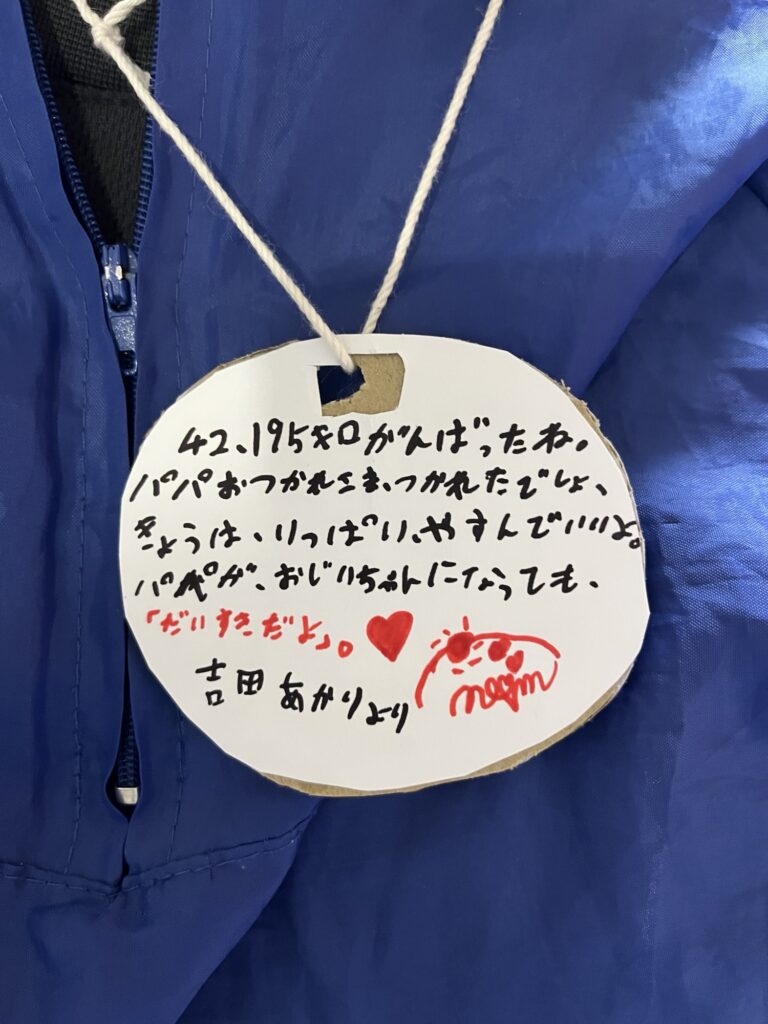 42.195キロがんばったね。
パパおつかれさま、つかれたでしょ、
きょうは、いっぱい、やすんでいいよ。
パパが、おじいちゃんになっても、
「だいすきだよ」。
吉田あかりより